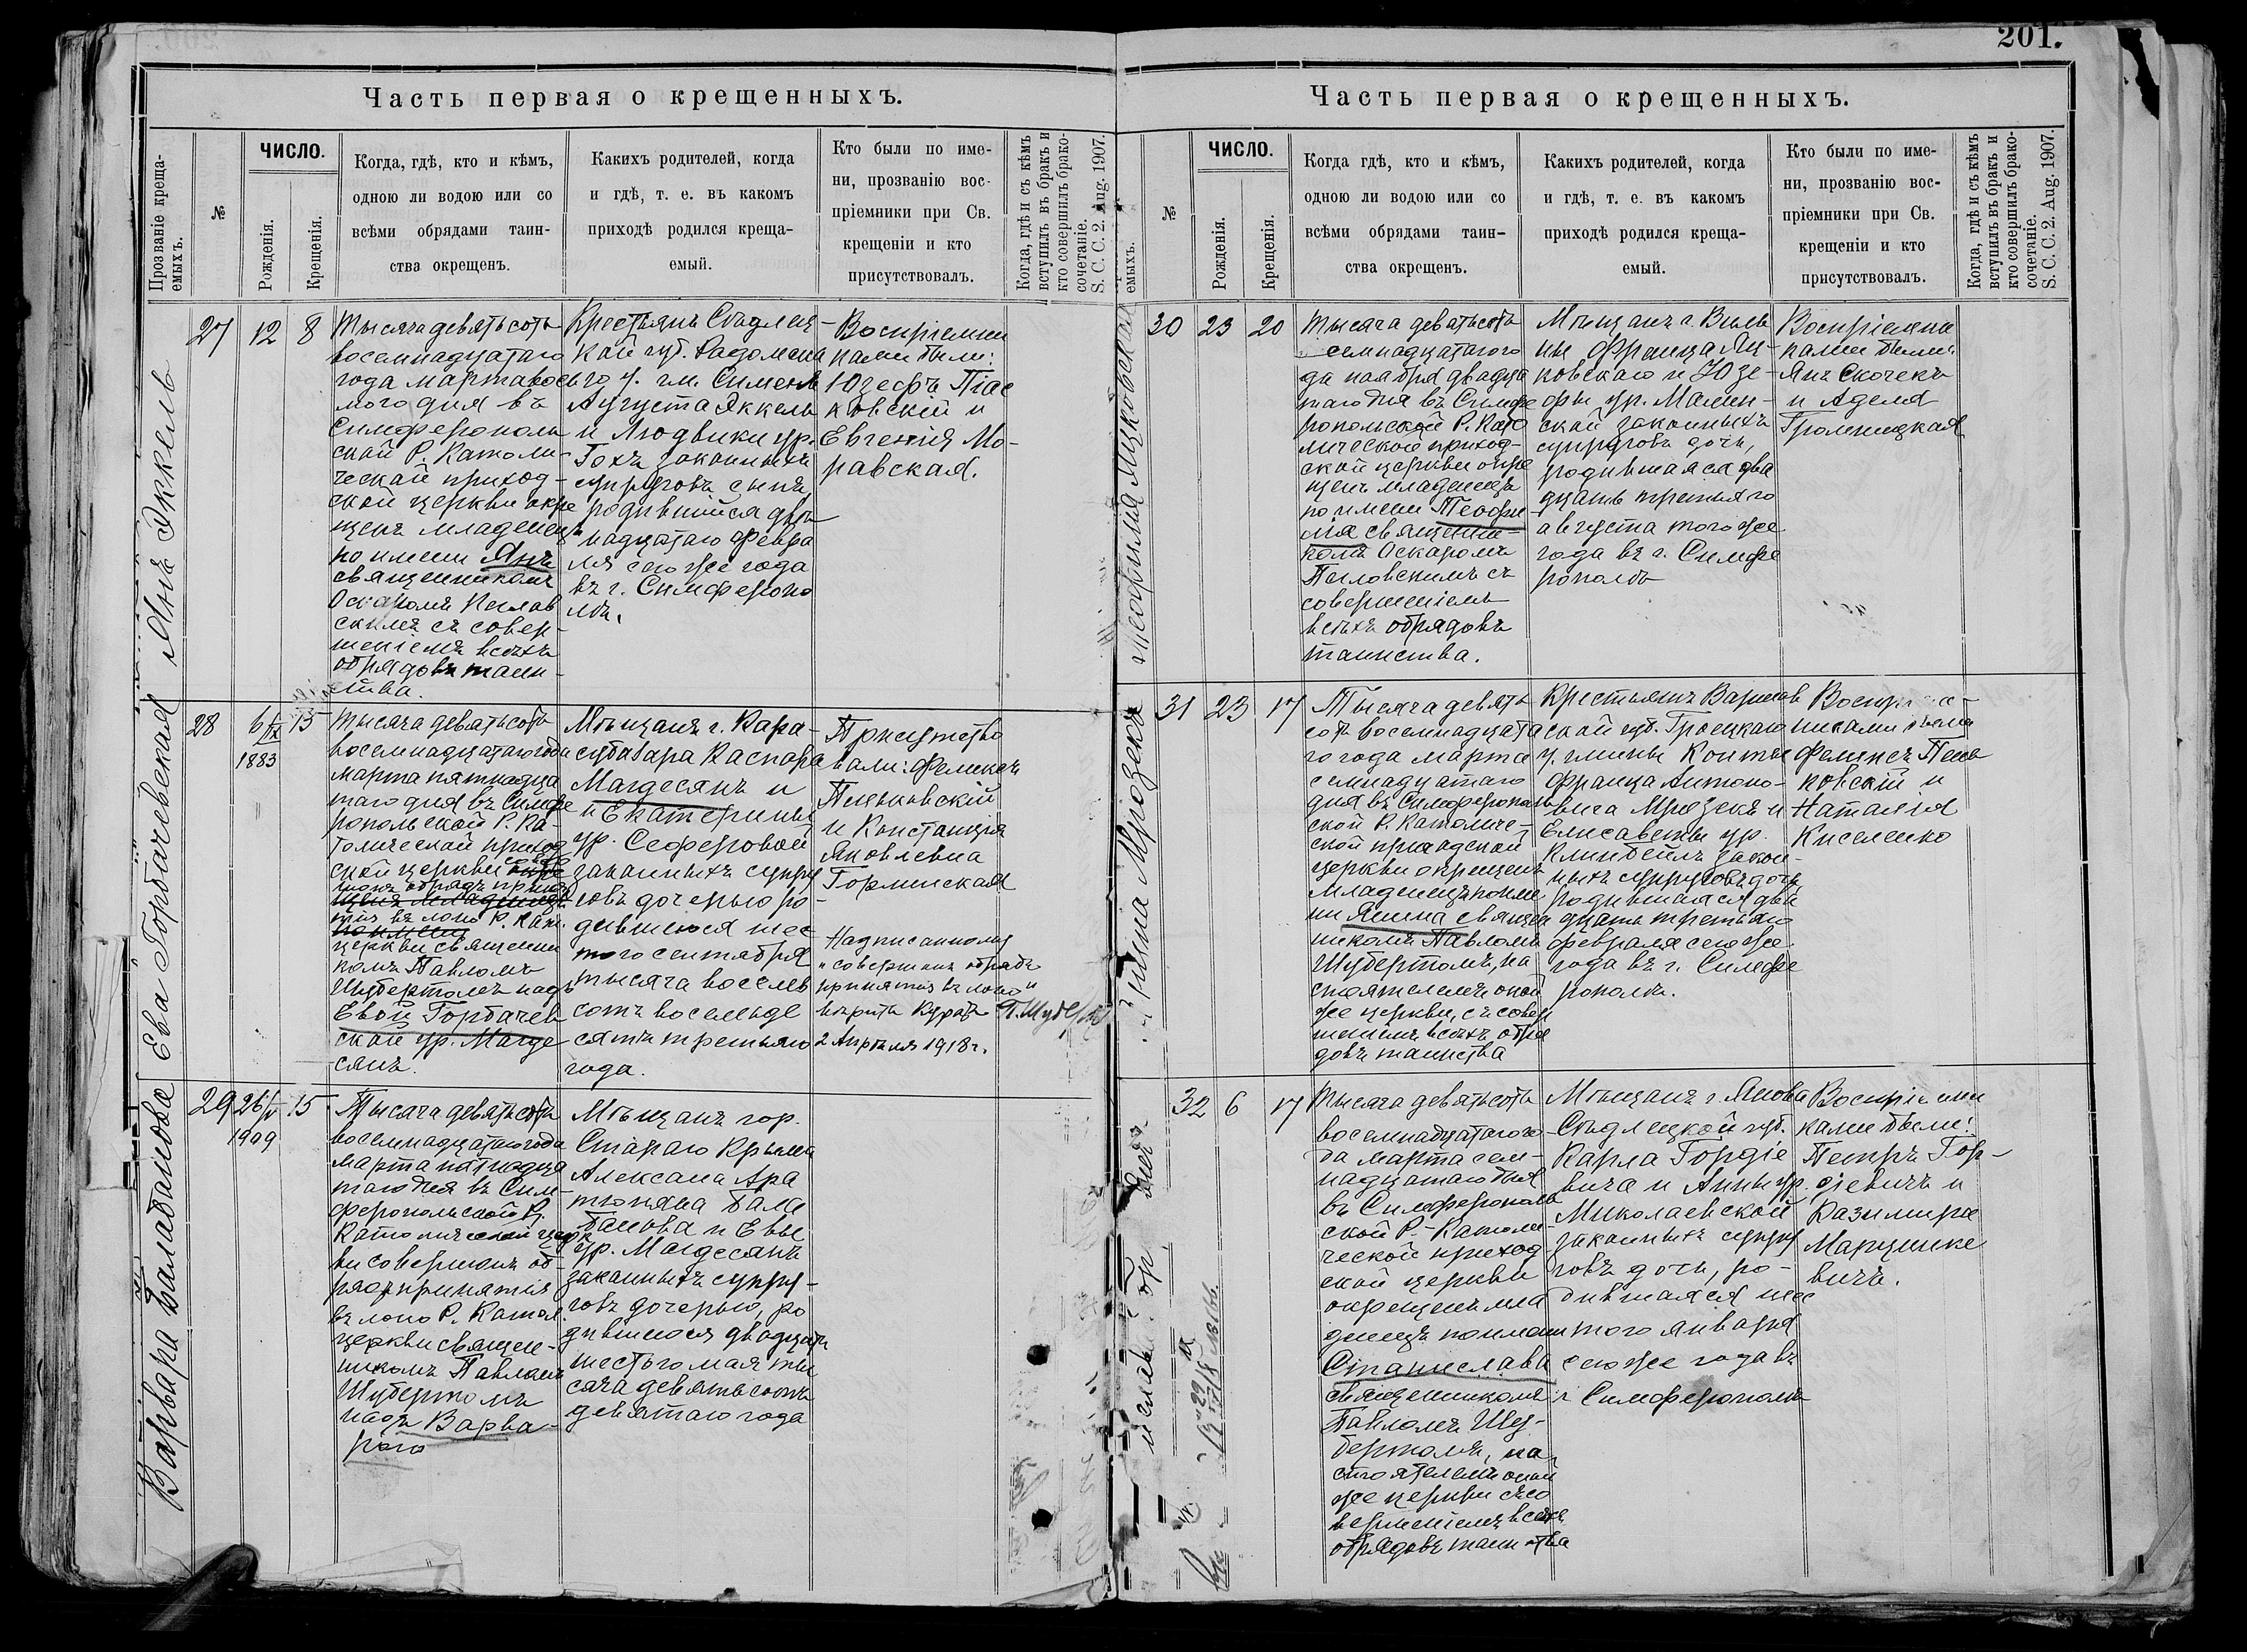 201.
Часть первая о крещенныхъ.
Прозваніе креща-
емыхъ.
№
ЧИСЛО.
Рожденія.
Крещенія.
Когда, гдѣ, кто и кѣмъ,
одною ли водою или со
всѣми обрядами таин-
ства окрещенъ.
Какихъ родителей, когда
и гдѣ, т. е. въ какомъ
приходѣ родился креща-
емый.
Кто были по име-
ни, прозванію вос-
пріемники при Св.
крещеніи и кто
присутствовалъ.
Когда, гдѣ и съ кѣмъ
вступилъ въ бракъ и
кто совершилъ брако-
сочетаніе.
S. C. C. 2. Aug. 1907.
Янъ Яккель
27 12 8
Тысяча девятьсотъ
восемнадцатаго
года марта вось
мого дня въ
Симферополь
ской Р. Католи-
ческой приход-
ской церкви окре
щенъ младенецъ
по имени Янъ
священникомъ
Оскаромъ
скимъ съ совер-
шеніемъ всѣхъ
обрядовъ таин-
ства.
Крестьянъ Сѣдлец-
кой губ. Радомска
го у. гм.
Августа Яккель
и Людвики ур.
Гохъ законныхъ
супруговъ сынъ
родившійся двѣ
надцатаго февра
ля сего же года
въ г. Симферопо
лѣ.
Воспріемни
ками были:
Юзефъ Піас
ковскій и
Евгенія Мо-
равская.
Ева Горбачевская
28 6/IX 15
1883
Тысяча девятьсотъ
восемнадцатаго года
марта пятнадца
таго дня въ Симфе
ропольской Р. Ка-
толической приход
ской церкви окре совер
шонъ обрядъ приня
щенъ младенецъ
тія въ лоно Р. Кат.
по имени
церкви священни
комъ Павломъ
Шубертомъ надъ
Евой Горбачев
ской ур. Магде
сянъ.
Мѣщанъ г. Кара-
субазара Каспара
Магдесянъ и
и Екатерины
ур. Сеферовой
законныхъ супру
говъ дочерью ро
дившеюся шес
того сентября
тысяча восемь
сотъ восемьде
сятъ третьяго
года.
Присутство
вали: Феликсъ
Пеньковскій
и Констанція
Яковлевна
Горлинская
Надписанному
"совершонъ обрядъ
принятія въ лоно"
вѣрить Куратъ П. Шубертъ
2 Апрѣля 1918 г.
Варвара Балабанова
29 26/V 15
1909
Тысяча девятьсотъ
восемнадцатаго года
марта пятнадца
таго дня въ Сим-
феропольской Р.
Католической церк
ви совершонъ об-
рядъ принятія
въ лоно Р. Катол.
церкви священ-
никомъ Павломъ
Шубертомъ
надъ Варва-
рою
Мѣщанъ гор.
Стараго Крыма
Алексана Ара
тюняна Бала
банова и Евы
ур. Магдесянъ
законныхъ супру-
говъ дочерью, ро
дившеюся двадцать
шестого мая ты
сяча девятьсотъ
девятаго года
Часть первая о крещенныхъ.
емыхъ.
№
ЧИСЛО.
Рожденія.
Крещенія.
Когда гдѣ, кто и кѣмъ,
одною ли водою или со
всѣми обрядами таин-
ства окрещенъ.
Какихъ родителей, когда
и гдѣ, т. е. въ какомъ
приходѣ родился креща-
емый.
Кто были по име-
ни, прозванію вос-
пріемники при Св.
крещеніи и кто
присутствовалъ.
Когда, гдѣ и съ кѣмъ
вступилъ въ бракъ и
кто совершилъ брако-
сочетаніе.
S. C. C. 2. Aug. 1907.
Теофилія Яцковская
30 23 20
Тысяча девятьсотъ
семнадцатаго го
да ноября двадца
таго дня въ Симфе
ропольской Р. Като
лической приход-
ской церкви окре
щенъ младенецъ
по имени Теофи
лія священни-
комъ Оскаромъ
съ
совершеніемъ
всѣхъ обрядовъ
таинства.
Мѣщанъ г. Виль
ны Франца Яц-
ковскаго и Юзе-
фы ур. Малин-
ской законныхъ
супруговъ дочь,
родившаяся два
дцать третьяго
августа того же
года въ г. Симфе
рополѣ
Воспріемни
ками были:
Янъ Скочекъ
и Аделя
Громницкая
Янина Мрозекъ
31 23 17
Тысяча девять
сотъ восемнадцата
го года марта
семнадцатаго
дня въ Симферополь
ской Р. Католиче-
ской приходской
церкви окрещенъ
младенецъ по име
ни Янина священ
никомъ Павломъ
Шубертомъ, на
стоятелемъ оной
же церкви, съ совер
шеніемъ всѣхъ обря
довъ таинства
Крестьянъ Варшав
ской губ. Гроецкаго
у. гмины Конты
Франца Антоно-
вича Мрозекъ и
Елисаветы ур.
Клинбейлъ закон-
ныхъ супруговъ дочь
родившаяся два
дцать третьяго
февраля сего же
года въ г. Симфе
рополѣ.
никами были
Феликсъ Пень
ковскій и
Наталія
Киселенко
32 6 17
Тысяча девятьсотъ
восемнадцатаго го-
да марта сем-
надцатаго дня
въ Симферополь
ской Р.-Католи-
ческой приход
ской церкви
окрещенъ мла
денецъ по имени
Станислава
священникомъ
Павломъ Шу-
бертомъ, на
стоятелемъ оной
же церкви съ со
вершеніемъ всѣхъ
обрядовъ таинства
Мѣщанъ г. Янова
Сѣдлецкой губ.
Карла Гордіе
вича и Анны ур.
Миколаевской
законныхъ супру
говъ дочь, ро-
дившаяся шес
того января
сего же года въ
г. Симферополѣ
Воспріемни
ками были:
Петръ Гор-
діевичъ и
Казимира
Марцинке
вичъ.